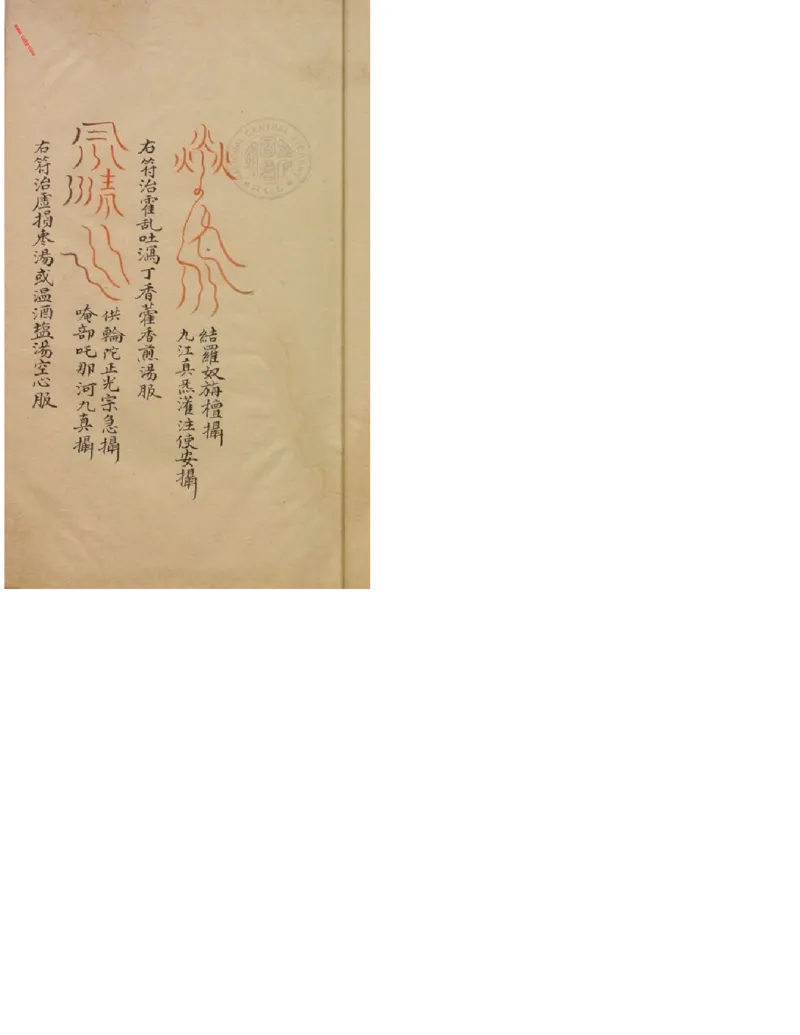 結羅奴旃檀攝
九江真炁灌注使安攝
右符治霍乱吐瀉丁香藿香煎湯服
供輪陀正光宗急攝
唵部吒那河九真攝
右符治虛損枣湯或温酒盐湯空心服
NATIONAL CENTRAL LIBRARY